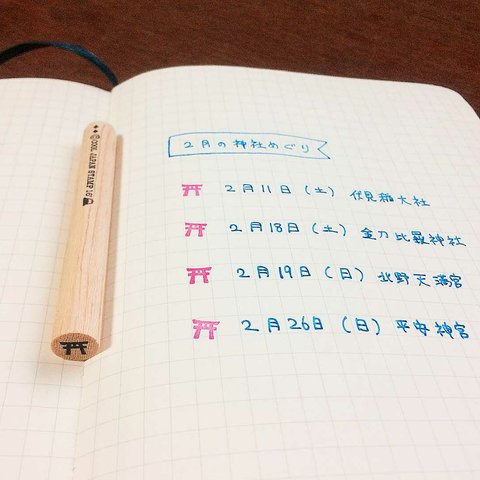 2月の神社めぐり
2月11日（土） 伏見稲大社
2月18日（土） 金刀比羅神社
2月19日（日） 北野天満宮
2月26日（日） 平安神宮
©COOL JAPAN STAMP 16